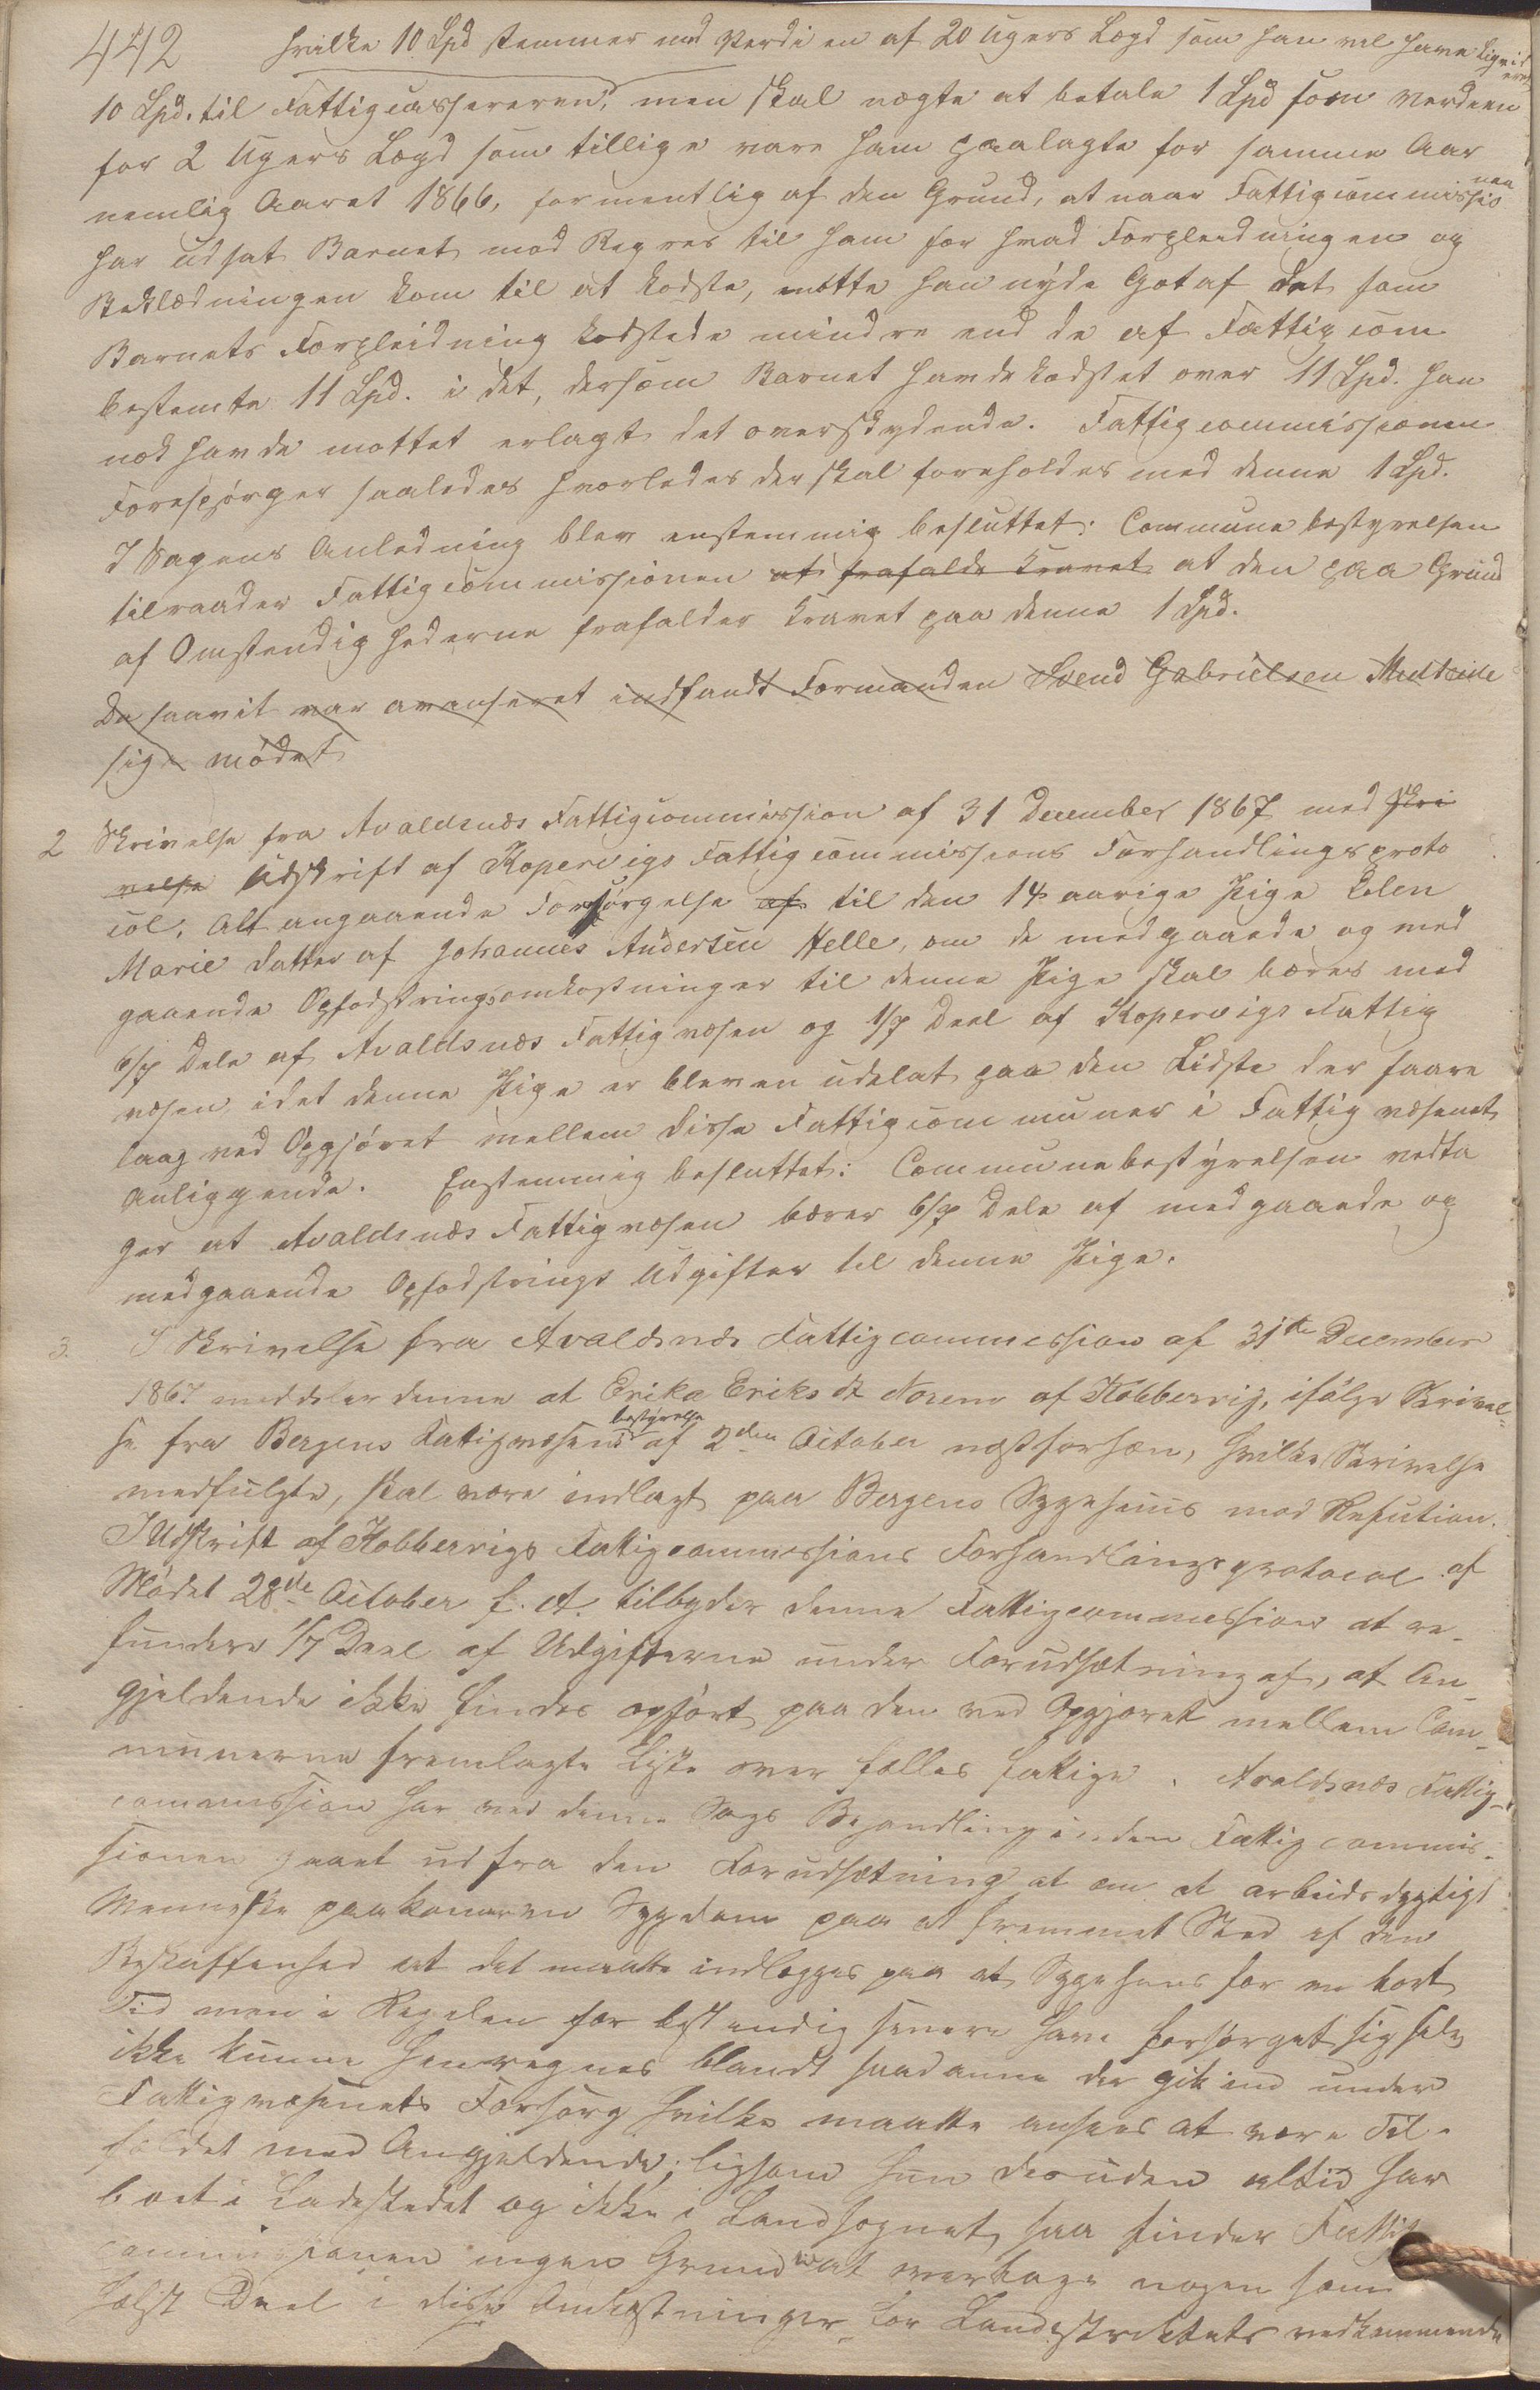 442 hvilke 10 Lpd stemmer med Værdien af 20 Ugers Lægd som han vel have liqvid
eret
10 Lpd. til Fattigcassereren, men skal nægte at betale 1 Lpd som verdeen
for 2 Ugers Lægd som tillige vare ham paalagte for samme Aar
nemlig Aaret 1866, formentlig af den Grund, at naar Fattigcommissio
nen
har udsat Barnet mod Regres til ham for hvad Forpleidningen og
Beklædningen kom til at kodste, matte han nyde Got af det som
Barnets Forpleidning kodstede mindre end de af Fattigcom
bestemte 11 Lpd. i det, dersom Barnet havde kodstet over 11 Lpd. han
nok havde mottet erlagt det overskydende. Fattigcommissionen
Forespørger saaledes hvorledes der skal foreholdes med denne 1 Lpd.
I Sagens Anledning blev enstemmig besluttet: Communebestyrelsen
tilraader Fattigcommissionen at frafalde Kravet at den paa Grund
af Omstendighederne frafalder Kravet paa denne 1 Lpd.
Da saavit var avanseret indfandt Formanden Svend Gabrielsen Medhøide
sig i mødet
2 Skrivelse fra Avaldsnæs Fattigcommission af 31 December 1867 med Skri
velse Udskrift af Kopervigs Fattigcommissions Forhandlingsproto
col, Alt angaaende Forsørgelse af til den 14 aarige Pige Elen
Marie datter af Johannes Andersen Helle, om de medgaaede og med
gaaende Opfodstringsomkostninger til denne Pige skal bæres med
6/7 Dele af Avaldsnæs Fattigvæsen og 1/7 Deel af Kopervigs Fattig
væsen, idet denne Pige er bleven udelat paa den Lidste der faare
laag ved Opgjøret mellem disse Fattigcommuner i Fattigvæsenet
Anliggende. Enstemmig besluttet: Communebestyrelsen vedta
ger at Avaldsnæs Fattigvæsen bærer 6/7 Dele af medgaaede og
medgaaende Opfodstrings Udgifter til denne Pige.
3. I Skrivelse fra Avaldsnæs Fattigcommission af 31te December
1867 meddeler denne at Erika Eriksdt Noreno af Kobbervig, ifølge Skrivel-
se fra Bergens Fattigvæsens bestyrelse af 2den October næstforhen, hvilke Skrivelse
medfulgte, skal være indlagt paa Bergens Sygehuus mod Refution.
I Udskrift af Kobbervigs Fattigcommissions Forhandlingsprotocol af
Mødet 28de October f. A. tilbyder denne Fattigcommission at re-
fundere 1/7 Deel af Udgifterne under Forudsætning af, at An-
gjeldende ikke findes opført paa den ved Opgjøret mellem Com-
munerne fremlagte Liste over fælles fattige. Avaldsnæs Fattig-
commission har ved denne Sags Behandling inden Fattigcommis-
sionen gaaet ud fra den Forudsætning at om et arbeidsdygtigt
Menneske paakommer en Sygdom paa et fremmet Sted af den
Beskaffenhed at det maatte indlægges paa et Sygehuus for en kort
Tid men i Regelen for bestendig senere have forsørget sig selv
ikke kunne henregnes blandt saadanne der gik ind under
Fattigvæsenets Forsørg hvilke maatte ansees at være Til-
fældet med Angjeldende; ligsom hun desuden altid har
boet i Ladestedet og ikke i Landsognet, saa finder Fattig
commissionen ingen Grund at overtage nogen som
helst Deel i disse Omkostninger for Landistriktets vedkommende